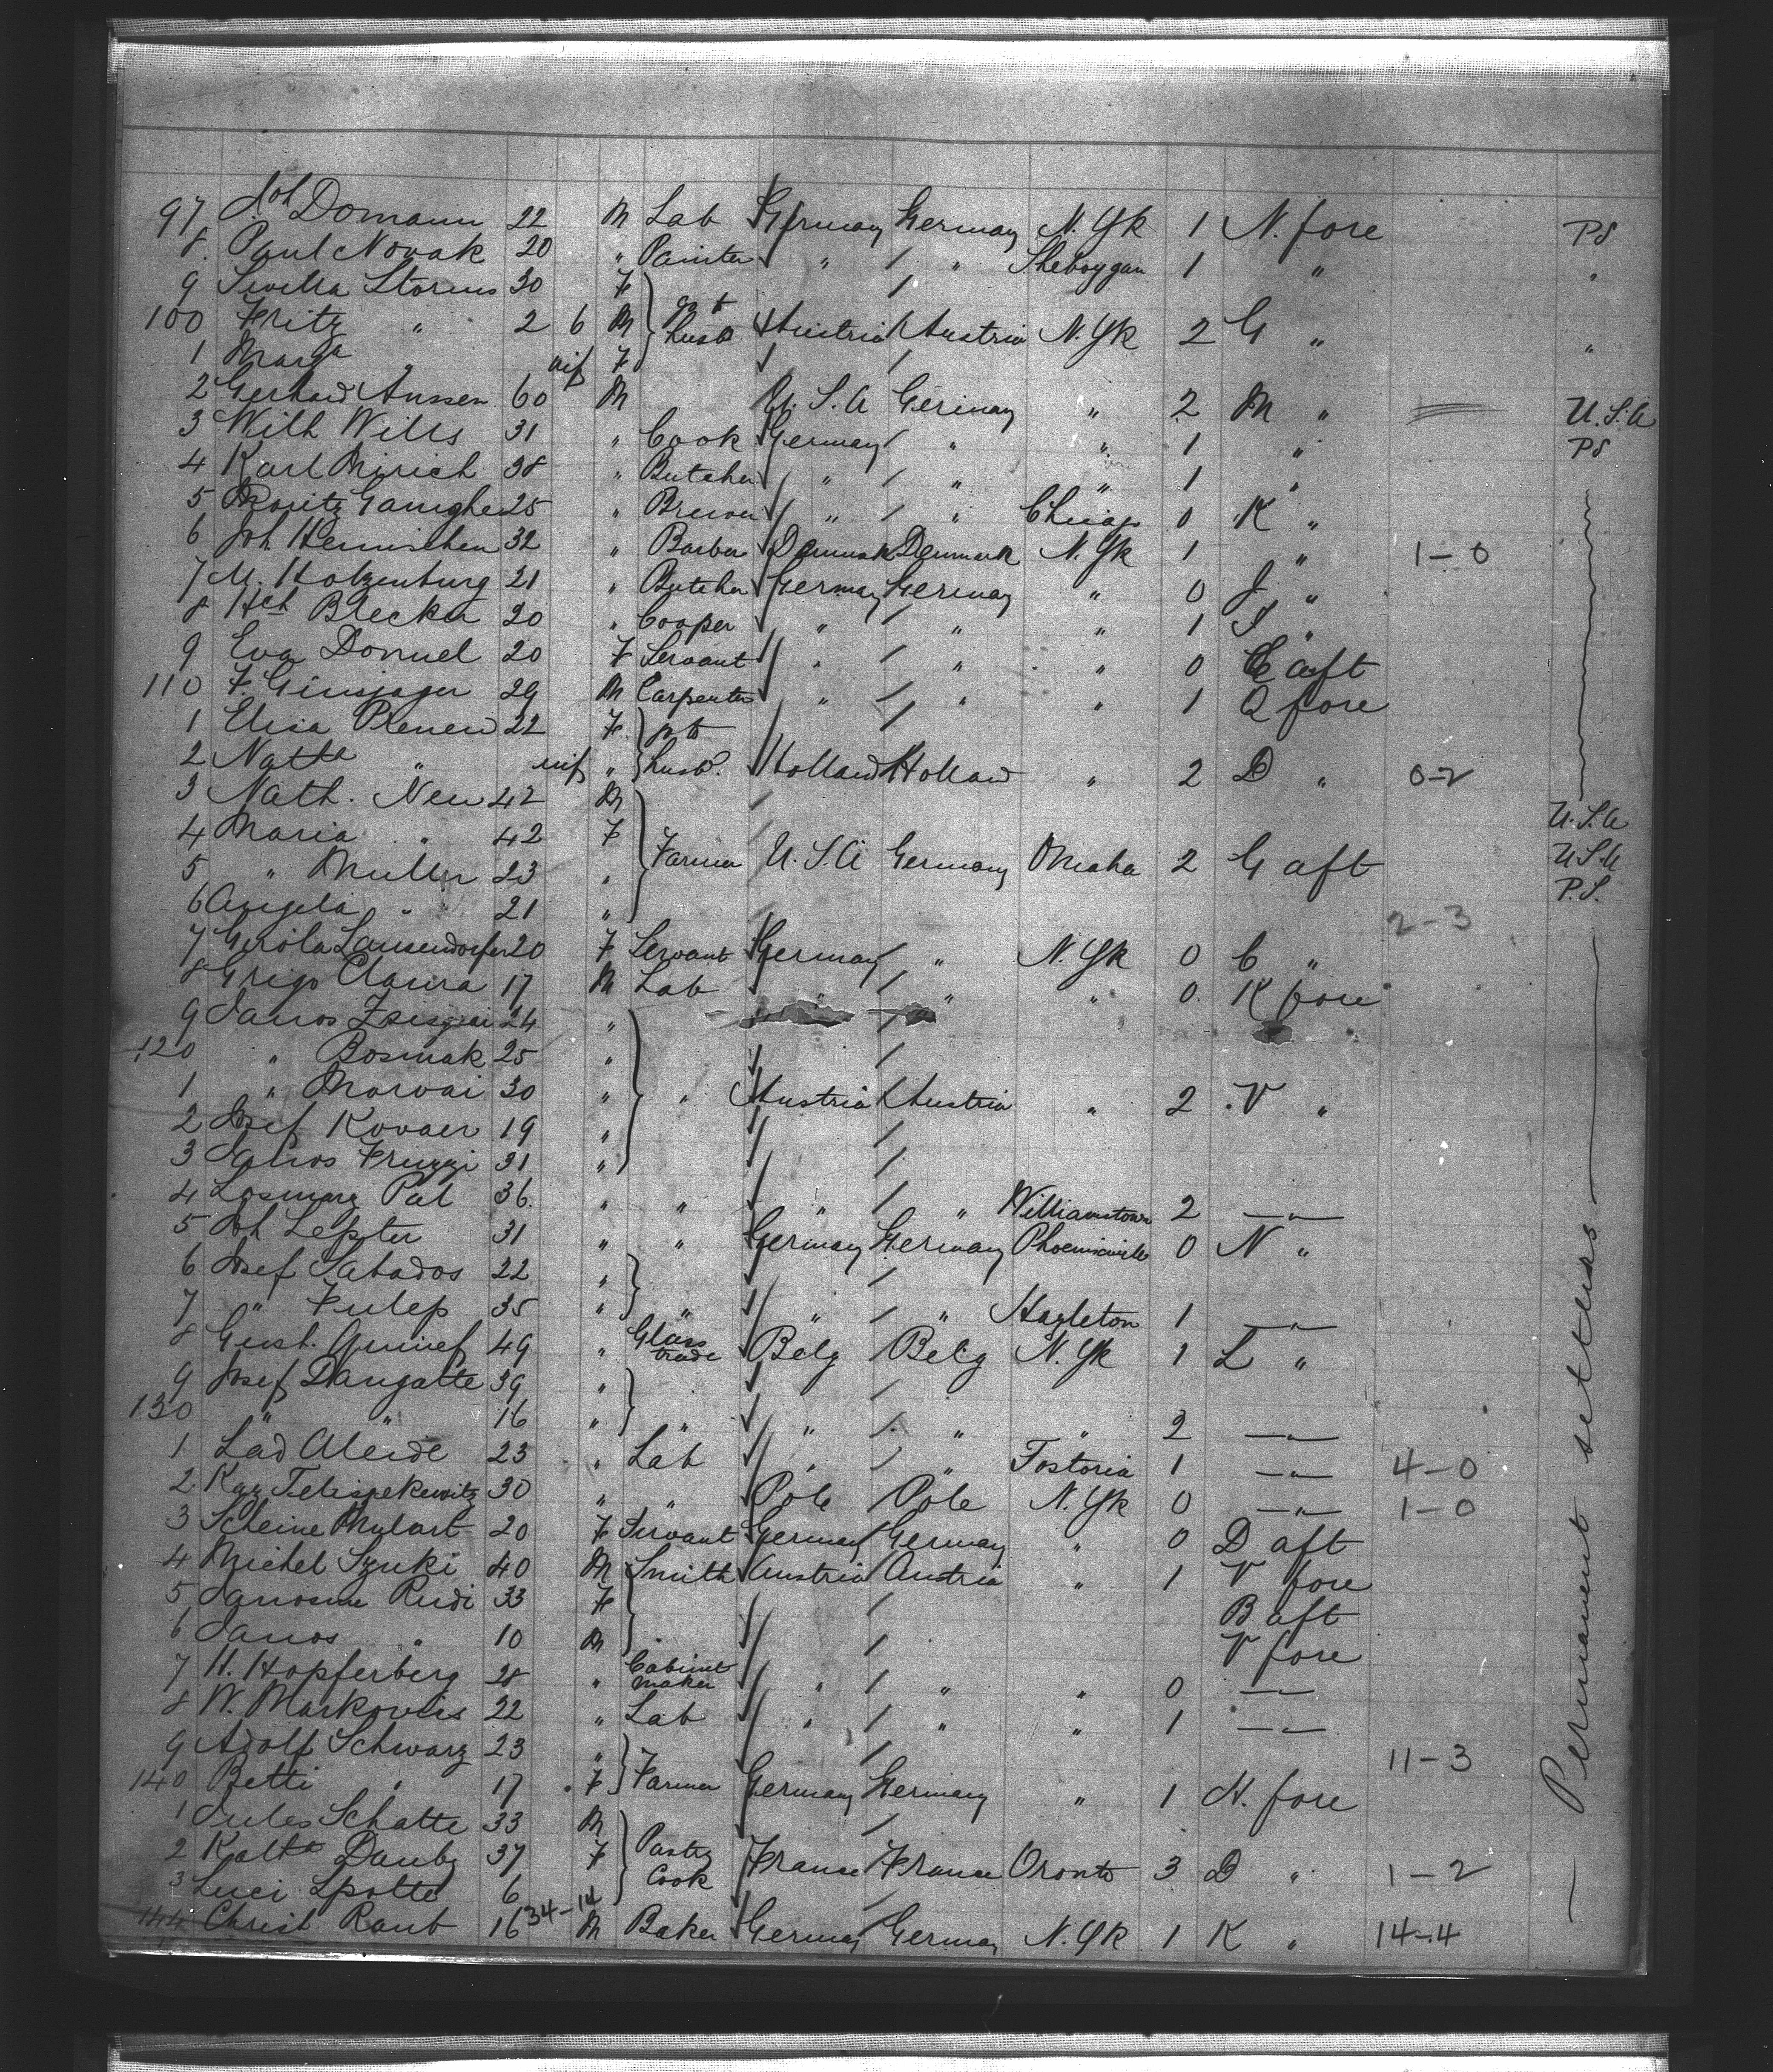 97 Joh Domann 22 M Lab Germany Germany N. Yk 1 N. fore PS
8 Paul Novak 20 " Painter " " Sheboygan 1 " "
9 Sevilla Storms 30 F
100 Fritz " 2 6 M husb Austria Austria N. Yk 2 G " "
1 Marga " inf F
2 Gerhard Anssen 60 M U. S. A Germany " 2 M " U.S.A
3 Wilh Wills 31 " Cook Germany " " 1 " PS
4 Karl Mirich 38 " Butcher " " " 1 "
5 Moritz 25 " Brewer " " Chicago 0 K "
6 Joh Hennischen 32 " Barber Denmark Denmark N. Yk 1 " 1-0
7 M. Holzenburg 21 " Butcher Germany Germany " 0 J "
8 Hch Blecker 20 " Cooper " " " 1 "
9 Eva Donnel 20 F Servant " " " 0 C aft
110 F. Ginsjager 29 M Carpenter " " " 1 Q fore
1 Elisa 22 F
2 Natta " inf " husb. Holland Holland " 2 D " 0-2
3 Nath. Neu 42 M U.S.A
4 Maria " 42 F Farmer U. S. A Germany Omaha 2 G aft U.S.A
5 " Muller 23 " P.S.
6 Angela " 21 " 2-3
7 Lausendorfer 20 F Servant Germany " N. Yk 0 C "
8 Grigo Claura 17 M Lab " " " 0 K fore
9 Janos 24 "
120 " Bosmak 25 "
1 " Morvai 30 " " Austria Austria " 2 V "
2 Josef Kovaer 19 "
3 Janos Fruzzi 31 "
4 Pal 36 " " " " Williamstown 2 "
5 Joh Lepter 31 " " Germany Germany Phoenixville 0 N "
6 Josef Sabados 22 "
7 " Fulep 35 " " " " Hazleton 1 "
8 Gust. 49 " Glass trade Belg Belg N. Yk 1 L "
9 Josef Dangatte 39 "
130 " " 16 " " " " " 2 "
1 Lad Aleide 23 " Lab " " Fostoria 1 " 4-0
2 Kaz 30 " " Pole Pole N. Yk 0 " 1-0
3 Scheine Mylart 20 F Servant Germany Germany " 0 D aft
4 Michel Szuki 40 M Smith Austria Austria " 1 V fore
5 Rudi 33 F B aft
6 Janos " 10 M V fore
7 H. Hopferberg 28 " Cabinet maker " " " 0 "
8 W. Markovits 22 " Lab " " " 1 "
9 Adolf Schwarz 23 " 11-3
140 Betti " 17 F Farmer Germany Germany " 1 N. fore
1 Jules Schatte 33 M
2 Dauby 37 F Pastry Cook France France Oronto 3 D " 1-2
3 Luci Spotte 6
34-14
144 Christ Raub 16 M Baker Germany Germany N. Yk 1 K " 14-4
Permanent settlers